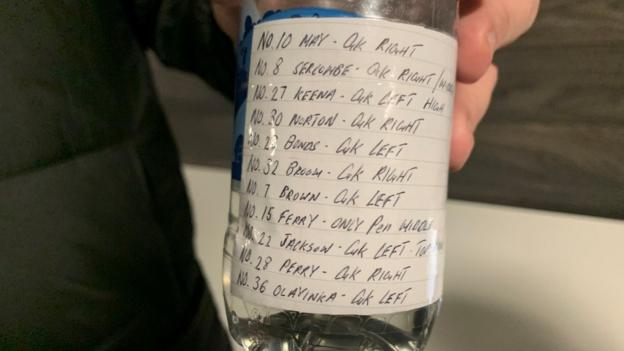 NO. 10 MAY - GK RIGHT
NO. 8 SERCOMBE - GK RIGHT /
NO. 27 KEENA - GK LEFT HIGH
NO. 30 NORTON - GK RIGHT
NO. 23 BONDS - GK LEFT
NO. 32 BROOM - GK RIGHT
NO. 7 BROWN - GK LEFT
NO. 15 FERRY - ONLY PEN MIDDLE
NO. 22 JACKSON - GK LEFT - TOP
NO. 28 PERRY - GK RIGHT
NO. 36 OLAYINKA - GK LEFT